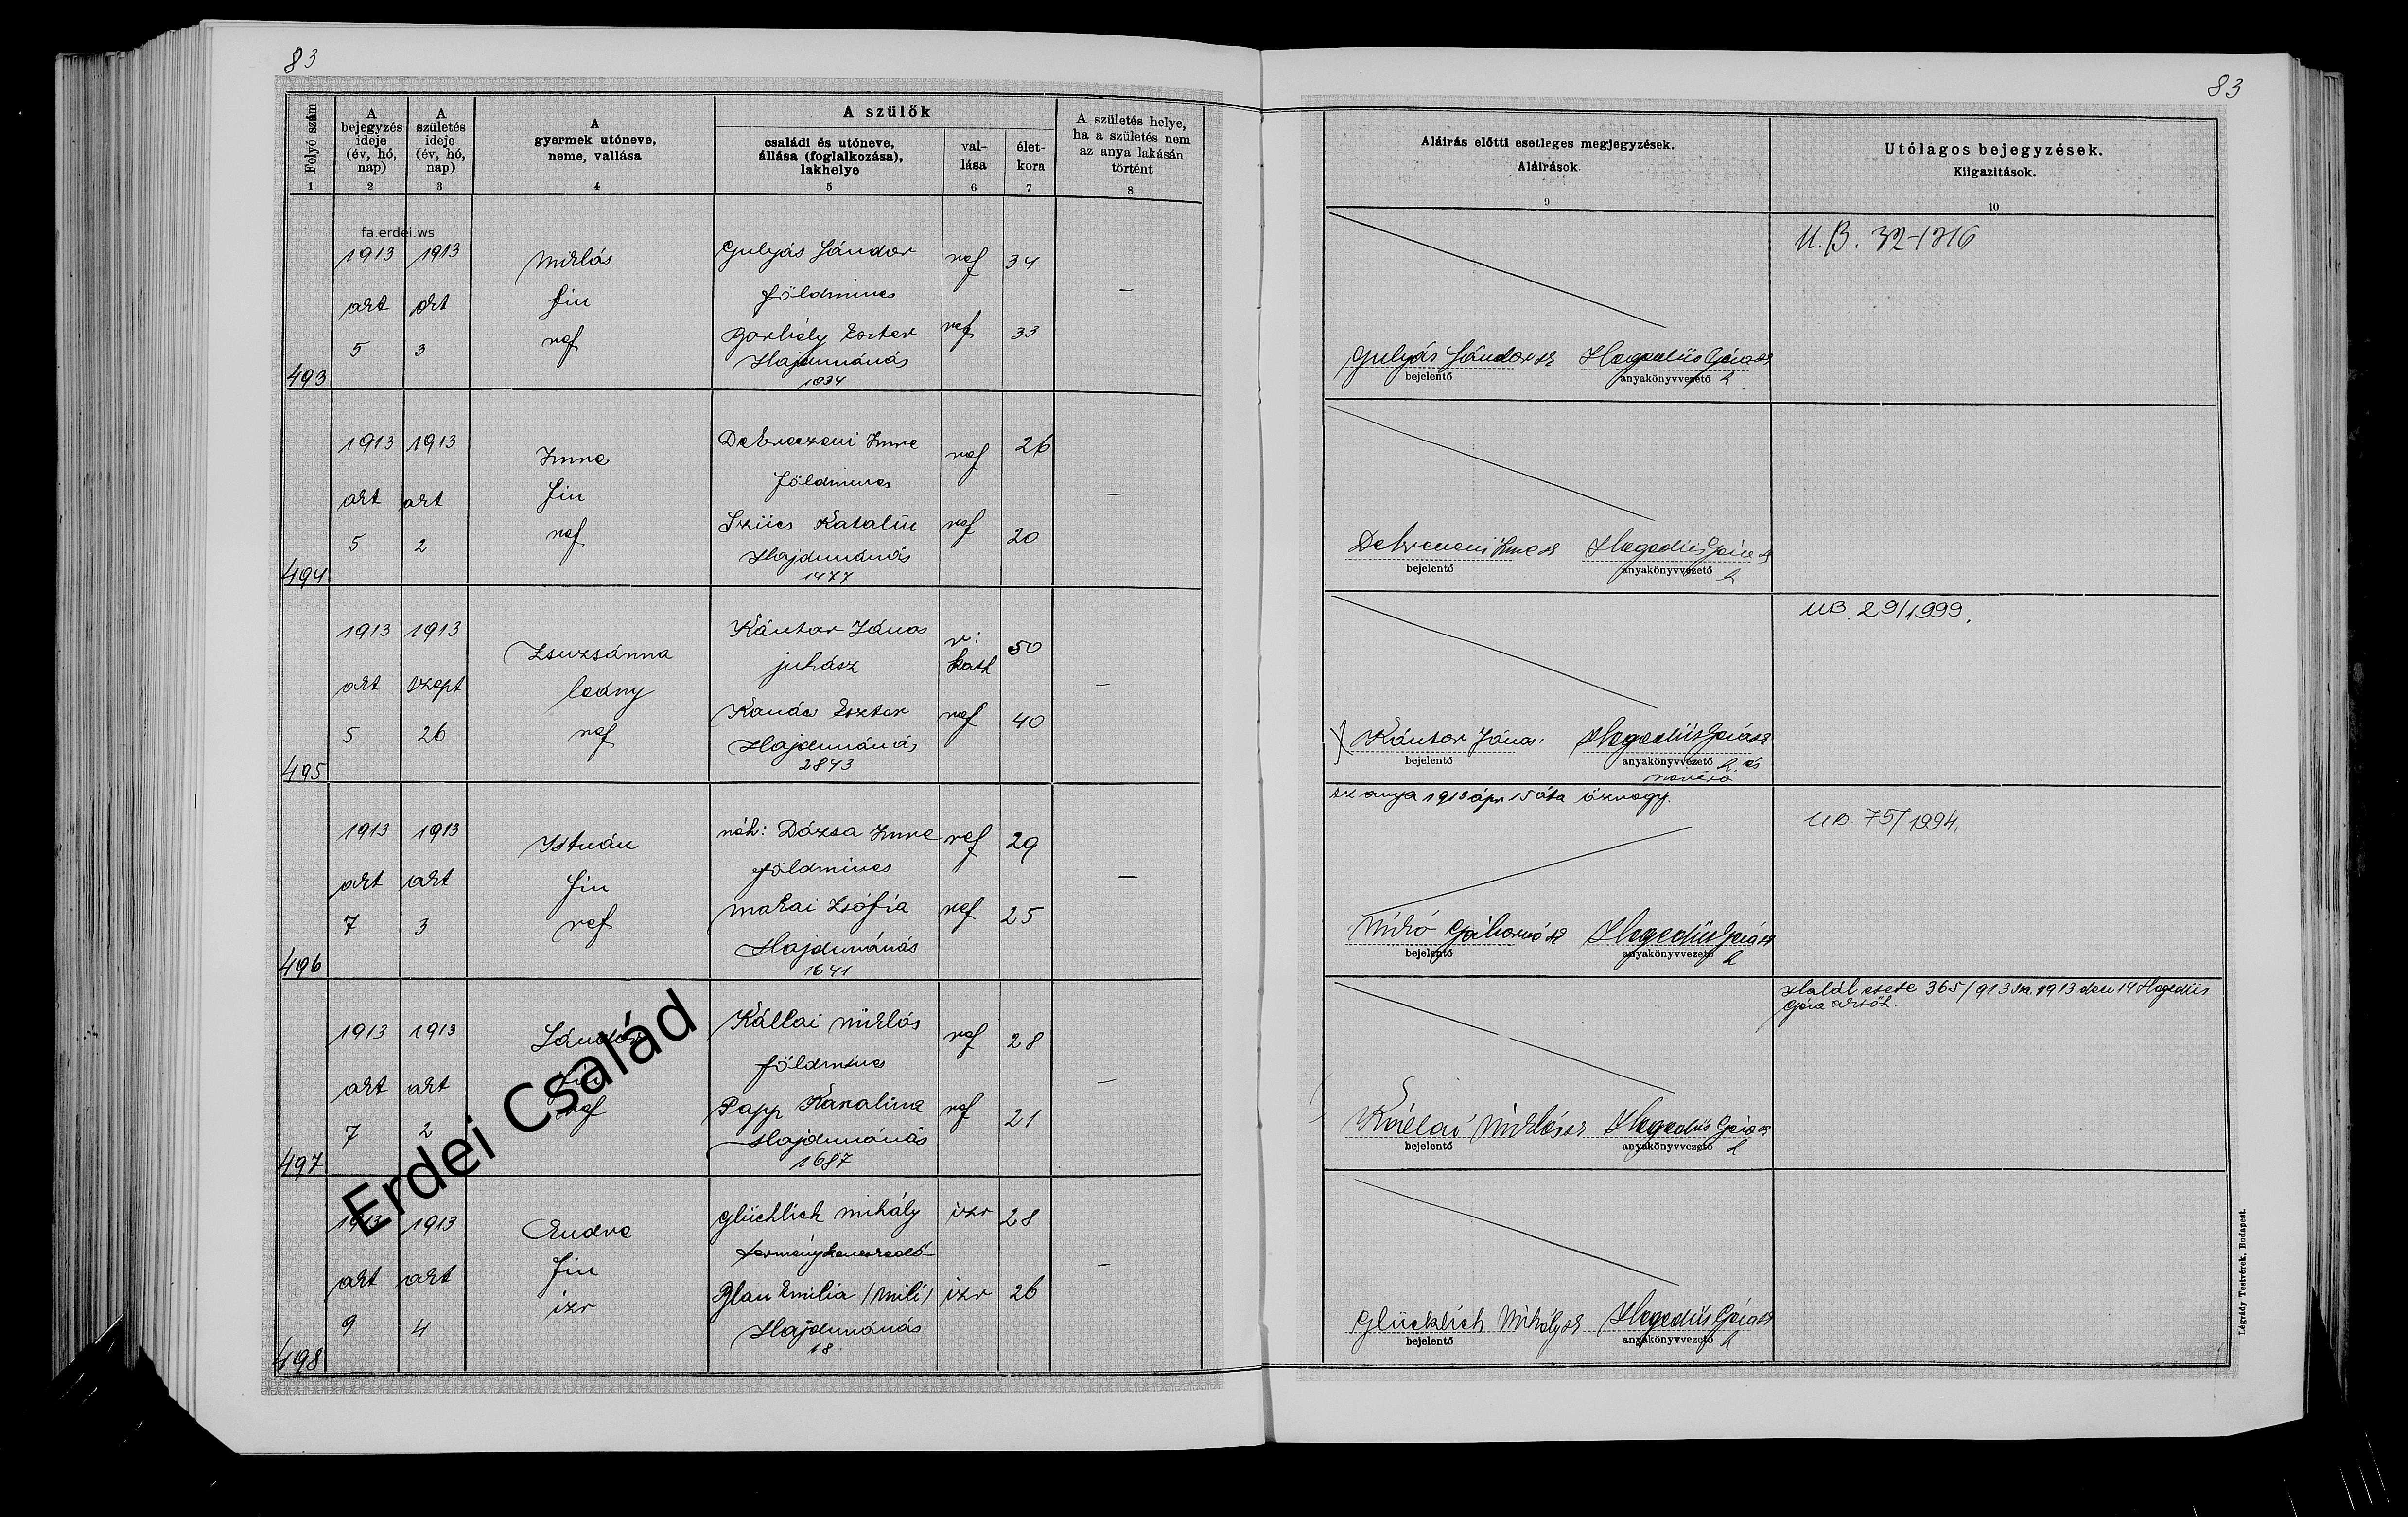 83
83
Folyó szám
A bejegyzés ideje (év, hó, nap)
A születés ideje (év, hó, nap)
A gyermek utóneve, neme, vallása
A szülők
családi és utóneve, állása (foglalkozása), lakhelye
val-lása
élet-kora
A születés helye, ha a születés nem az anya lakásán történt
Aláírás előtti esetleges megjegyzések.
Aláírások.
Utólagos bejegyzések.
Kiigazítások.
1 2 3 4 5 6 7 8 9 10
fa.erdei.ws
1913 1913 Miklós Gulyás Sándor ref 34
U.B. 32-1216
okt okt fiu földmives —
5 3 ref Eszter ref 33
Hajdunánás
493 1034
Gulyás Sándor sk Hegedüs Géza sk
bejelentő anyakönyvvezető h
1913 1913 Imre Debreczeni Imre ref 26
okt okt fiu földmives —
5 2 ref Szücs Katalin ref 20
Hajdunánás
494 1477
Debreceni Imre sk Hegedüs Géza sk
bejelentő anyakönyvvezető h
1913 1913 Zsuzsánna Kántor János r: kath 50
UB. 29/1999.
okt szept leány juhász —
5 26 ref Eszter ref 40
Hajdunánás
495 2843
Kántor János Hegedüs Géza sk
bejelentő anyakönyvvezető h. és
az anya 1913 ápr 15 óta özvegy.
1913 1913 István néh: Dózsa Imre ref 29
UB. 75/1994.
okt okt fiu földmives —
7 3 ref Makai Zsófia ref 25
Hajdunánás
496 1641
Mikó Gáborné sk Hegedüs Géza sk
bejelentő anyakönyvvezető h
Halál esete 365/913 sz. 1913 dec 14 Hegedüs
Géza
1913 1913 Sándor Kállai Miklós ref 28
okt okt fiu földmives —
7 2 ref Papp Karalina ref 21
Hajdunánás
497 1687
Kállai Miklós sk Hegedüs Géza sk
bejelentő anyakönyvvezető h
Erdei Család
1913 1913 Endre Glücklich Mihály izr 28
okt okt fiu terménykereskedő —
9 4 izr Blau Emilia (Mili) izr 26
Hajdunánás
498 18
Glücklich Mihály sk Hegedüs Géza sk
bejelentő anyakönyvvezető h
Légrády Testvérek, Budapest.